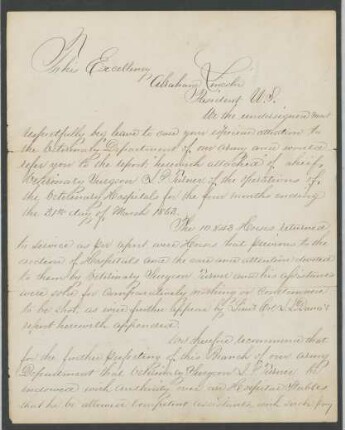 To his Excellency
Abraham Lincoln
President U.S.
We the undersigned most
respectfully beg leave to call your especial attention to
the Veterinary Department of our Army and would
refer you to the report herewith attached of chief
Veterinary Surgeon of the operations of
the Veterinary Hospitals for the four months ending
the 31st day of March 1863.
The Horses returned
to service as per report were Horses that previous to the
of Hospitals and the care and attention
to them by Veterinary Surgeon and his
were sold for nothing or condemned
to be shot, as will further appear by
report herewith appended.
We recommend that
for the further perfecting of this Branch of our Army
Department that Veterinary Surgeon be
with authority over Hospital Stables
that he be allowed competent assistants, with such pay